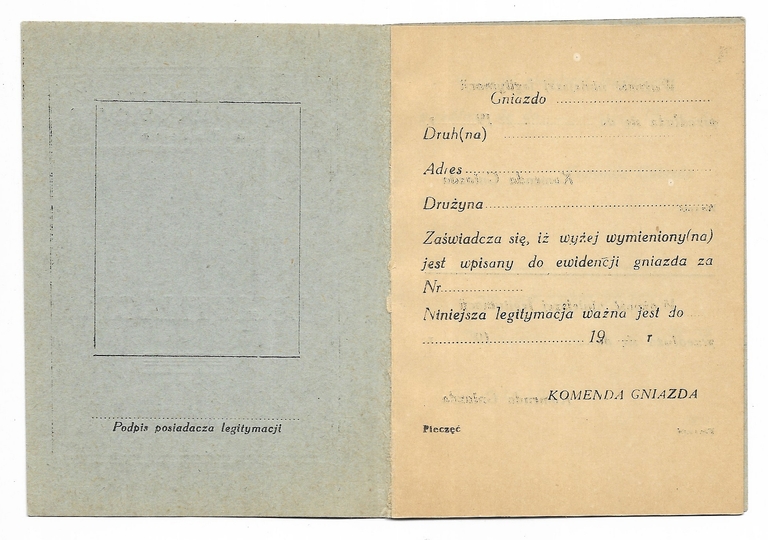 Podpis posiadacza legitymacji
Gniazdo
Druh(na)
Adres
Drużyna
Zaświadcza się, iż wyżej wymieniony(na)
jest wpisany do ewidencji gniazda za
Nr
Niniejsza legitymacja ważna jest do
19 r
KOMENDA GNIAZDA
Pieczęć